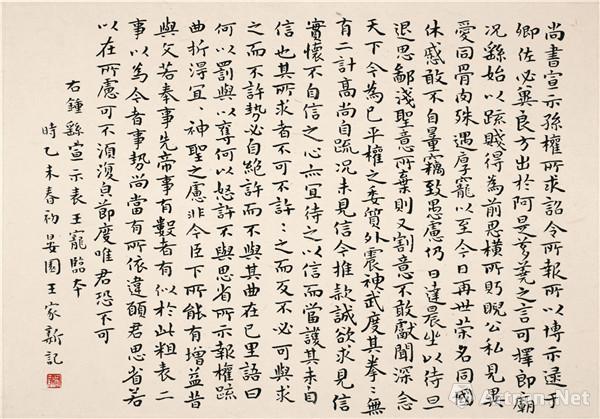 尚書宣示孫權所求詔令所報所以博示逮于
卿佐必冀良方出於阿是芻蕘之言可擇郎廟
況繇始以疏賤得為前恩橫所睨公私見異
愛同骨肉殊遇厚寵以至今日再世榮名同國
休慼敢不自量竊致愚慮仍日達晨坐以待旦
退思鄙淺聖意所棄則又割意不敢獻聞深念
天下今為已平權之委質外震神武度其拳〻無
有二計高尚自疏況未見信今推款誠欲求見信
實懷不自信之心亦宜待之以信而當護其未自
信也其所求者不可不許〻之而反不必可與求
之而不許勢必自絕許而不與其曲在己里語曰
何以罰與以奪何以怒許不與思省所示報權疏
曲折得宜神聖之慮非今臣下所能有增益昔
與文若奉事先帝事有數者有似於此粗表二
事以為今者事勢尚當有所依違願君思省若
以在所慮可不須復貞節度唯君恐不可
右鍾繇宣示表王寵臨本
時乙未春初晏園王家新記
Artron.Net